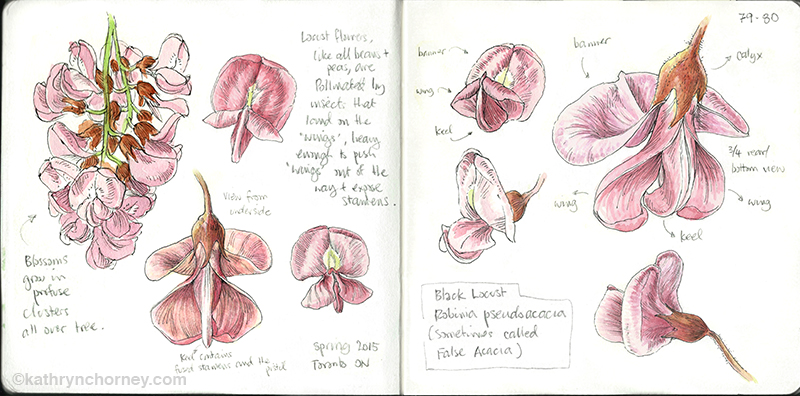 Locust flowers,
like all beans +
peas, are
Pollinated by
insects that
land on the
"wings", heavy
enough to push
"wings" out of the
way + expose
stamens.
View from
underside
Blossoms
grow in
profuse
clusters
all over tree.
Keel contains
fused stamens and the pistil
Spring 2015
Toronto ON
©kathrynchorney.com
79-80
banner
wing
keel
banner
calyx
3/4 rear/
bottom view
wing
wing
keel
Black Locust
Robinia pseudoacacia
(sometimes called
False Acacia)